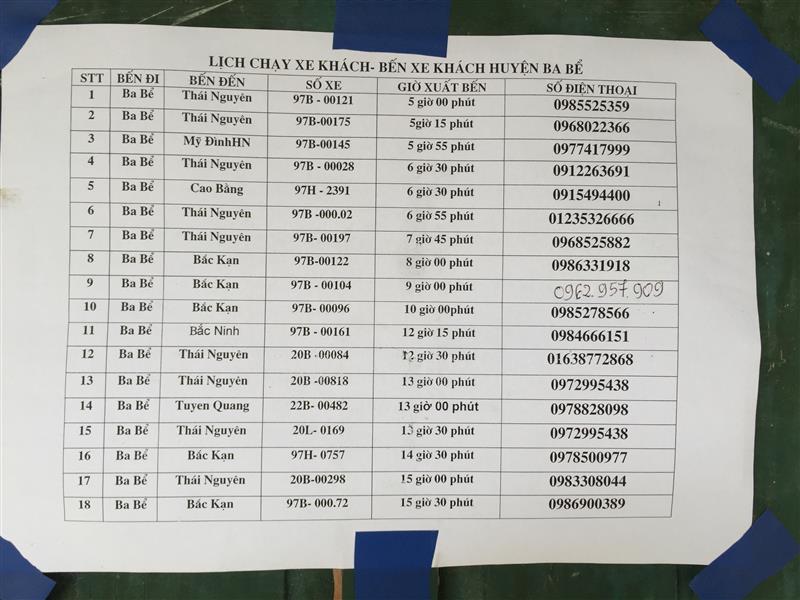 LỊCH CHẠY XE KHÁCH- BẾN XE KHÁCH HUYỆN BA BỂ
STT BẾN ĐI BẾN ĐẾN SỐ XE GIỜ XUẤT BẾN SỐ ĐIỆN THOẠI
1 Ba Bể Thái Nguyên 97B - 00121 5 giờ 00 phút 0985525359
2 Ba Bể Thái Nguyên 97B-00175 5giờ 15 phút 0968022366
3 Ba Bể Mỹ ĐìnhHN 97B-00145 5 giờ 55 phút 0977417999
4 Ba Bể Thái Nguyên 97B - 00028 6 giờ 30 phút 0912263691
5 Ba Bể Cao Bằng 97H - 2391 6 giờ 30 phút 0915494400
6 Ba Bể Thái Nguyên 97B -000.02 6 giờ 55 phút 01235326666
7 Ba Bể Thái Nguyên 97B- 00197 7 giờ 45 phút 0968525882
8 Ba Bể Bắc Kạn 97B-00122 8 giờ 00 phút 0986331918
9 Ba Bể Bắc Kạn 97B - 00104 9 giờ 00 phút 0962.957.909
10 Ba Bể Bắc Kạn 97B- 00096 10 giờ 00phút 0985278566
11 Ba Bể Bắc Ninh 97B - 00161 12 giờ 15 phút 0984666151
12 Ba Bể Thái Nguyên 20B -00084 12 giờ 30 phút 01638772868
13 Ba Bể Thái Nguyên 20B -00818 13 giờ 00 phút 0972995438
14 Ba Bể Tuyen Quang 22B- 00482 13 giờ 00 phút 0978828098
15 Ba Bể Thái Nguyên 20L- 0169 13 giờ 30 phút 0972995438
16 Ba Bể Bắc Kạn 97H- 0757 14 giờ 30 phút 0978500977
17 Ba Bể Thái Nguyên 20B-00298 15 giờ 00 phút 0983308044
18 Ba Bể Bắc Kạn 97B- 000.72 15 giờ 30 phút 0986900389